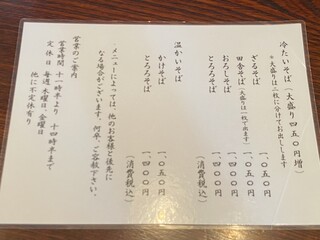 冷たいそば（大盛り四五〇円増）
＊大盛りは二枚に分けてお出しします
ざるそば 一、〇五〇円
田舎そば（大盛りは一枚で出ます） 一、〇五〇円
おろしそば 一、四〇〇円
とろろそば 一、四〇〇円
（消費税込）
温かいそば
かけそば 一、〇五〇円
とろろそば 一、四〇〇円
（消費税込）
メニューによっては、他のお客様と後先に
なる場合がございます。何卒、ご容赦下さい。
営業のご案内
営業時間 十一時半より 十四時半まで
定休日 毎週 木曜日、金曜日
他に不定休有り